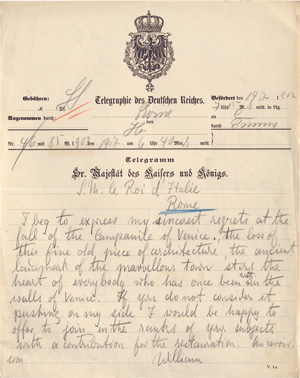 Gebühren:
Telegraphie des Deutschen Reiches.
Befördert den 19/7 1902
Rome
Angenommen durch:
von
durch:
Nr. 46 mit 85 W. 1902 den 19/7 um 6 Uhr 40 Min
Telegramm
Sr. Majestät des Kaisers und Königs.
S. M. le Roi d'Italie
Rome
I beg to express my sincerest regrets at the
fall of the Campanile of Venice, the loss of
this fine old piece of architecture, the ancient
landmark of the marvellous town stirs the
heart of everybody who has once been within the
walls of Venice. If you do not consider it
pushing on my side I would be happy to
offer to join in the ranks of your subjects
with a contribution for the restauration. Au revoir
soon.
William
V. 1a